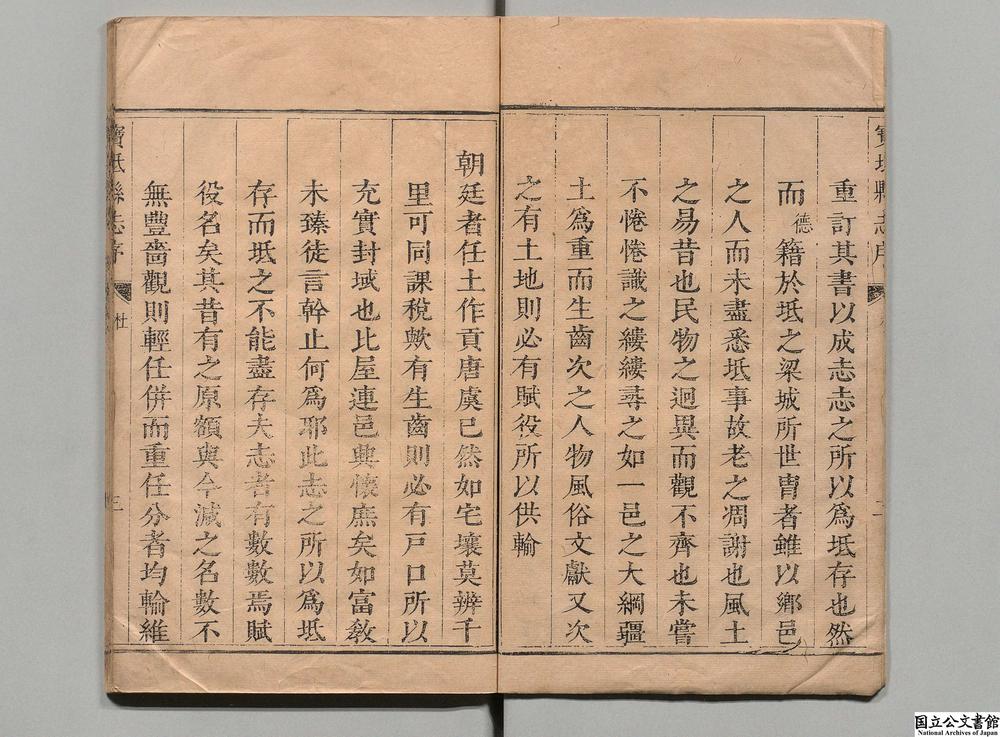 重訂其書以成志志之所以爲坻存也然
而德籍於坻之梁城所世胄者雖以鄉邑
之人而未盡悉坻事故老之凋謝也風土
之易昔也民物之迥異而觀不齊也未嘗
不惓惓識之縷縷尋之如一邑之大綱疆
土爲重而生齒次之人物風俗文獻又次
之有土地則必有賦役所以供輸
朝廷者任土作貢唐虞已然如宅壤莫辨千
里可同課稅歟有生齒則必有戸口所以
充實封域也比屋連邑興懷庶矣如富敎
未臻徒言幹止何爲耶此志之所以爲坻
存而坻之不能盡存夫志者有數數焉賦
役名矣其昔有之原額與今減之名數不
無豐嗇觀則輕任併而重任分者均輸維
寶坻縣志序
杜
三
国立公文書館
National Archives of Japan